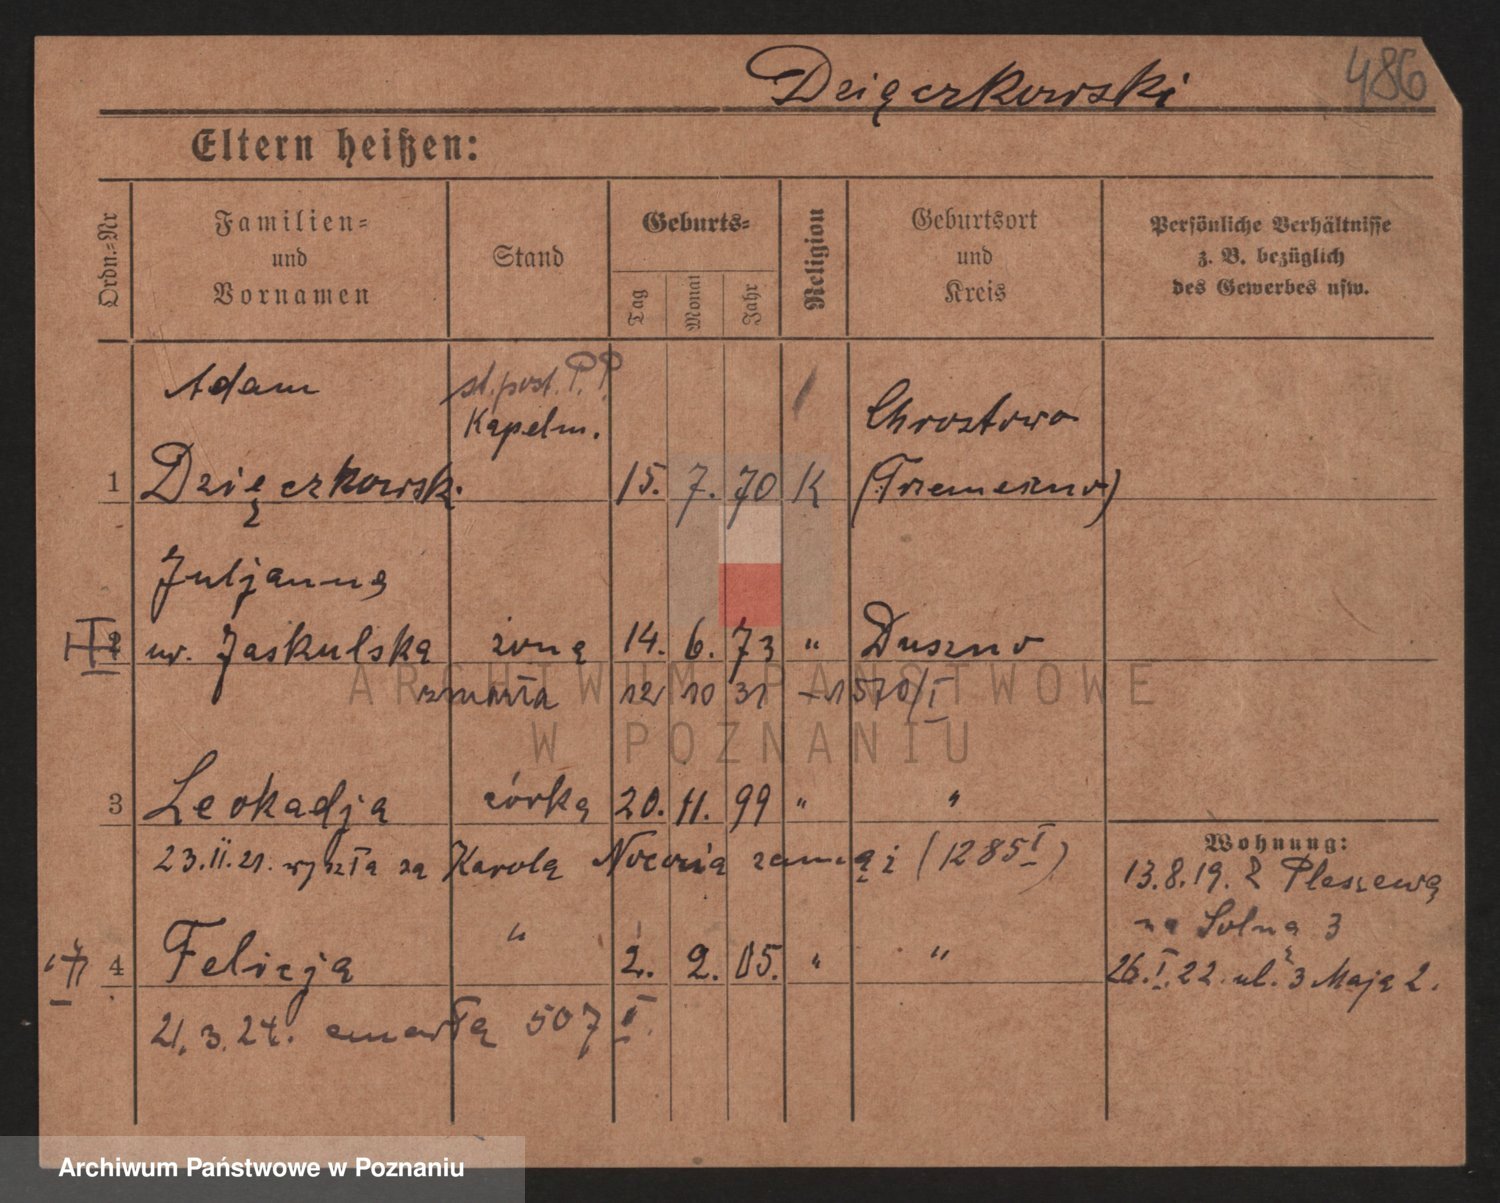 Dzięczkowski 486
Eltern heißen:
Ordn.-Nr
Familien-
und
Vornamen
Stand
Geburts-
Tag
Monat
Jahr
Religion
Geburtsort
und
Kreis
Persönliche Verhältnisse
z. B. bezüglich
des Gewerbes usw.
Adam st. post. P.P.
Kapelm. Chrostowo
1 Dzięczkowski 15. 7. 70 K (Trzemeszno)
Juljanna
2 ur. Jaskulska żona 14. 6. 73 " Duszno
zmarła 12 10 31 – 1570/I
3 Leokadja córka 20. 11. 99 " "
23.II.21. wyszła za Karola Nocenia zamąż (1285 I)
Wohnung:
13.8.19. Z Pleszewa
na Solna 3
4 Felicja " 2. 2. 05. " "
26.I.22. ul. 3 Maja 2.
21.3.24. zmarła 507 I.
ARCHIWUM PAŃSTWOWE
W POZNANIU
Archiwum Państwowe w Poznaniu